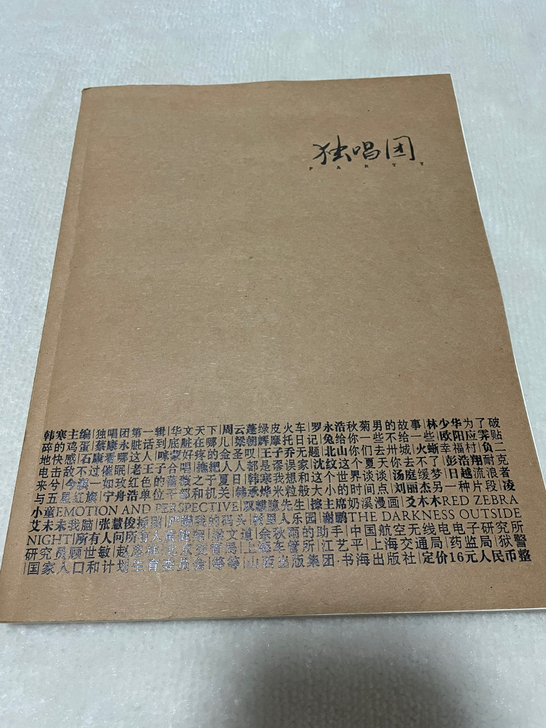 独唱团
PARTY
韩寒主编|独唱团第一辑|华文天下|周云蓬绿皮火车|罗永浩秋菊男的故事|林少华为了破
碎的鸡蛋|蔡康永脏话到底脏在哪儿|梁朝辉摩托日记|兔给你一些不给一些|欧阳应霁贴
地快感|石康看哪这人|咪蒙好疼的金圣叹|王子乔无题|北山你们去卅城|火蜥幸福村|负二
电击敌不过催眠|老王子合唱|拖把人人都是谬误家|沈纹这个夏天你去不了|彭浩翔耐克
来兮|今燕一如玫红色的蔷薇之于夏日|韩寒我想和这个世界谈谈|汤庭缓梦|口越流浪者
与五星红旗|宁舟浩单位 干部和机关|韩承烨米粒般大小的时间点|刘丽杰另一种片段|凌
小童EMOTION AND PERSPECTIVE|双耀瞳先生|擦主席奶溪漫画|爻木木RED ZEBRA
艾未未我脑|张慧俊 THE DARKNESS OUTSIDE
NIGHT|所有人问所有人 余秋雨的助手|中国航空无线电电子研究所
研究员顾世敏 上海车管所|江艺平|上海交通局|药监局|狱警
国家人口和计划生育委员会|等等|山西出版集团·书海出版社|定价16元人民币整